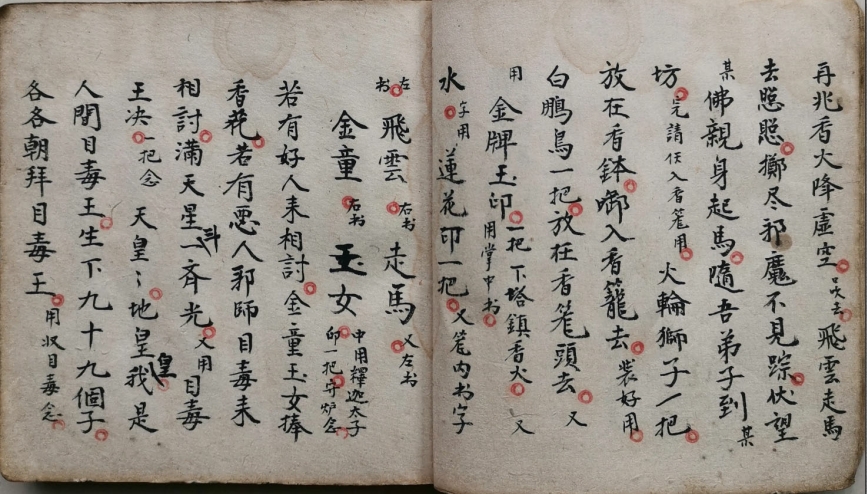 再兆香火降虛空吹去飛雲走馬
去愿愿擲尽邪魔不見踪伏望
某佛親身起馬隨吾弟子到某
坊完請伏入香筂用火輪獅子一把
放在香鉢啣入香籠去裝好用
白鵬鳥一把放在香筂頭去又
用金牌玉印一把下塔鎮香火又
用掌中书
水字用蓮花印一把又筂内书字
左书飛雲右书走馬又左书
金童右书玉女中用釋迦太子
印一把守炉念
若有好人来相討金童玉女捧
香花若有悪人邪師目毒来
相討满天星斗一齊光又用目毒
王决一把念天皇〻地皇皇我是
人間目毒王生下九十九個子
各各朝拜目毒王用収目毒念